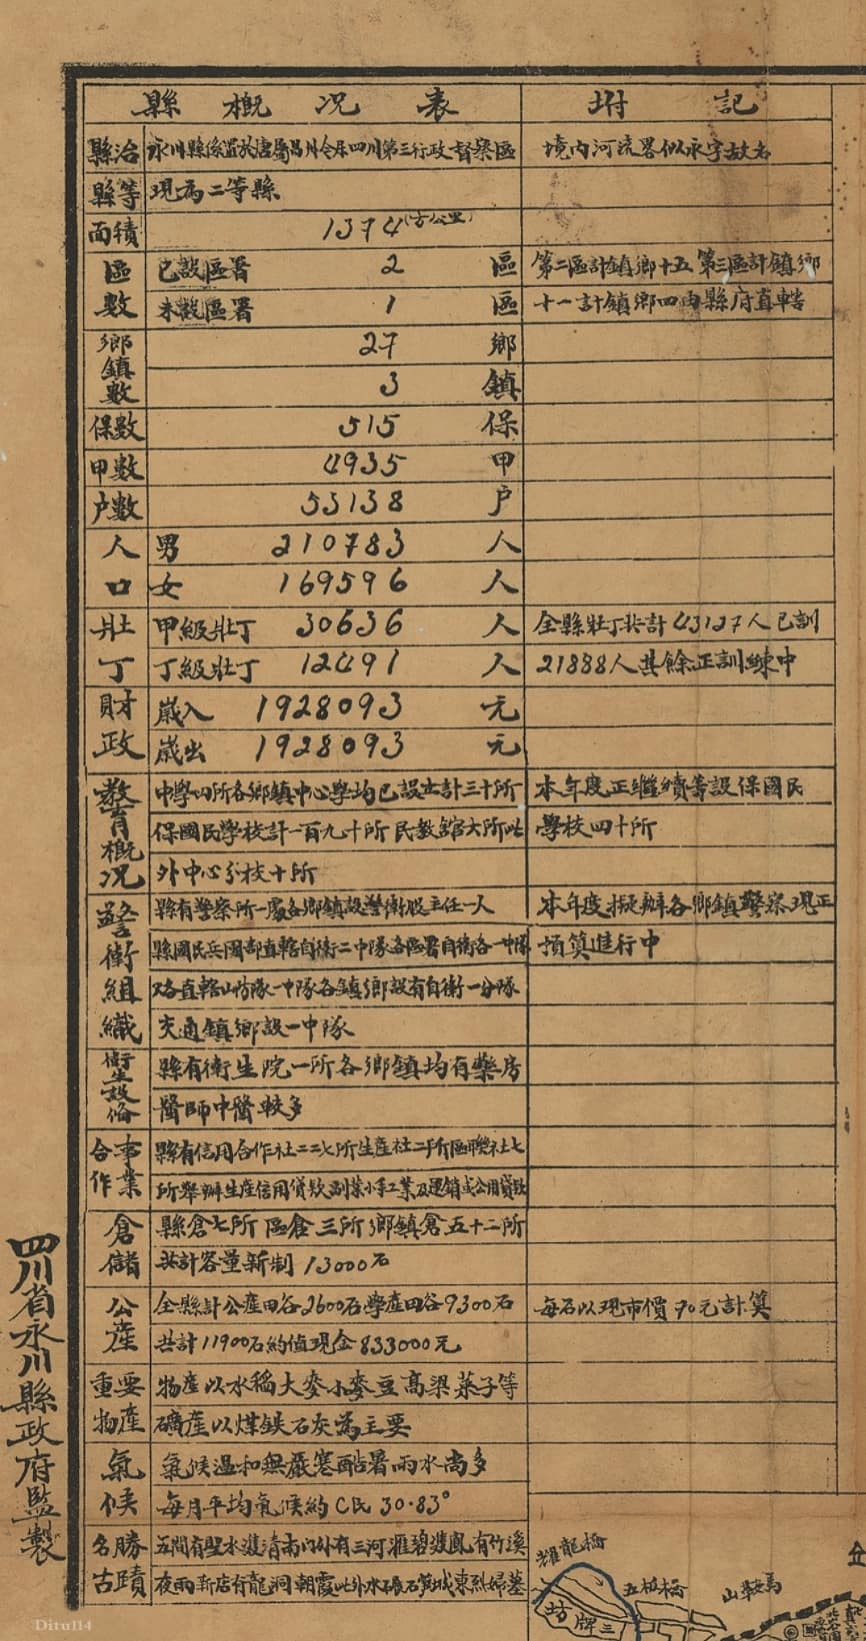 縣概況表 坿記
縣治 永川縣係置於唐屬昌州今屬四川第三行政督察區 境內河流畧似永字故名
縣等 現為二等縣
面積 1374(方公里)
區數 已設區署 2 區 第二區計鎮鄉十五第三區計鎮鄉
未設區署 1 區 十一計鎮鄉四由縣府直轄
鄉鎮數 27 鄉
3 鎮
保數 515 保
甲數 4935 甲
户數 53138 户
人口 男 210783 人
女 169596 人
壯丁 甲級壯丁 30636 人 全縣壯丁共計43127人已訓
丁級壯丁 12491 人 21888人其餘正訓練中
財政 嵗入 1928093 元
嵗出 1928093 元
教育概況 中學四所各鄉鎮中心學均已設立計三十所 本年度正繼續籌設保國民
保國民學校計一百九十所民教館六所此 學校四十所
外中心分校十所
警衛組織 縣有警察所一處各鄉鎮設警衛股主任一人 本年度擬辦各鄉鎮警察現正
縣國民兵團部直轄自衛二中隊各區署自衛各一中隊 預算進行中
直轄山防隊一中隊各鎮鄉設有自衛一分隊
交通鎮鄉設一中隊
衛生設備 縣有衛生院一所各鄉鎮均有藥房
醫師中醫較多
合作事業 縣有信用合作社二二七所生產社二所區聯社七
所舉辦生產信用貸款副業小手工業及運銷或公用貸款
倉儲 縣倉七所區倉三所鄉鎮倉五十二所
共計容量新制13000石
公產 全縣計公產田谷2600石學產田谷9300石 每石以現市價70元計算
共計11900石約值現金833000元
重要物產 物產以水稲大麥小麥豆高梁菜子等
礦產以煤鉄石灰為主要
氣候 氣候温和無嚴寒酷暑雨水尚多
每月平均氣候約C民30.83°
名勝古蹟 五間有聖水渡清南門外有三河滙碧渡鳳有竹溪
夜雨新店有龍洞朝霞此外水碾石城東烈婦墓
四川省永川縣政府監製
耀龍橋
五板橋
山鞍馬
坊牌三
Ditu114